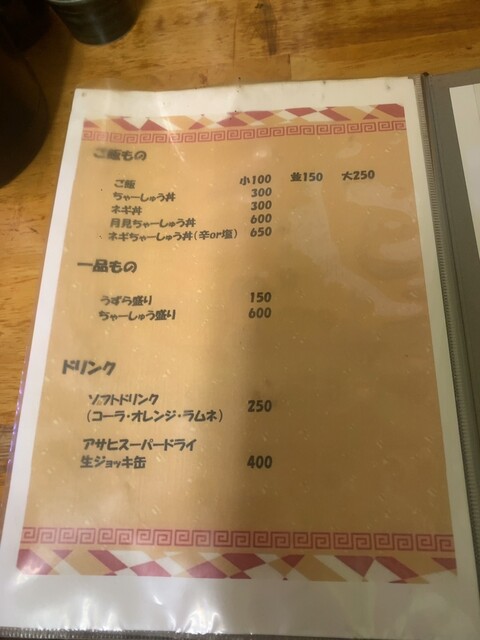 ご飯もの
ご飯 小100 並150 大250
ちゃーしゅう丼 300
ネギ丼 300
月見ちゃーしゅう丼 600
ネギちゃーしゅう丼(辛or塩) 650
一品もの
うずら盛り 150
ちゃーしゅう盛り 600
ドリンク
ソフトドリンク
(コーラ・オレンジ・ラムネ) 250
アサヒスーパードライ
生ジョッキ缶 400